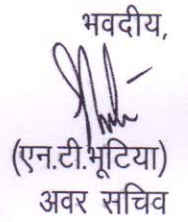 भवदीय,
(एन.टी.भूटिया)
अवर सचिव